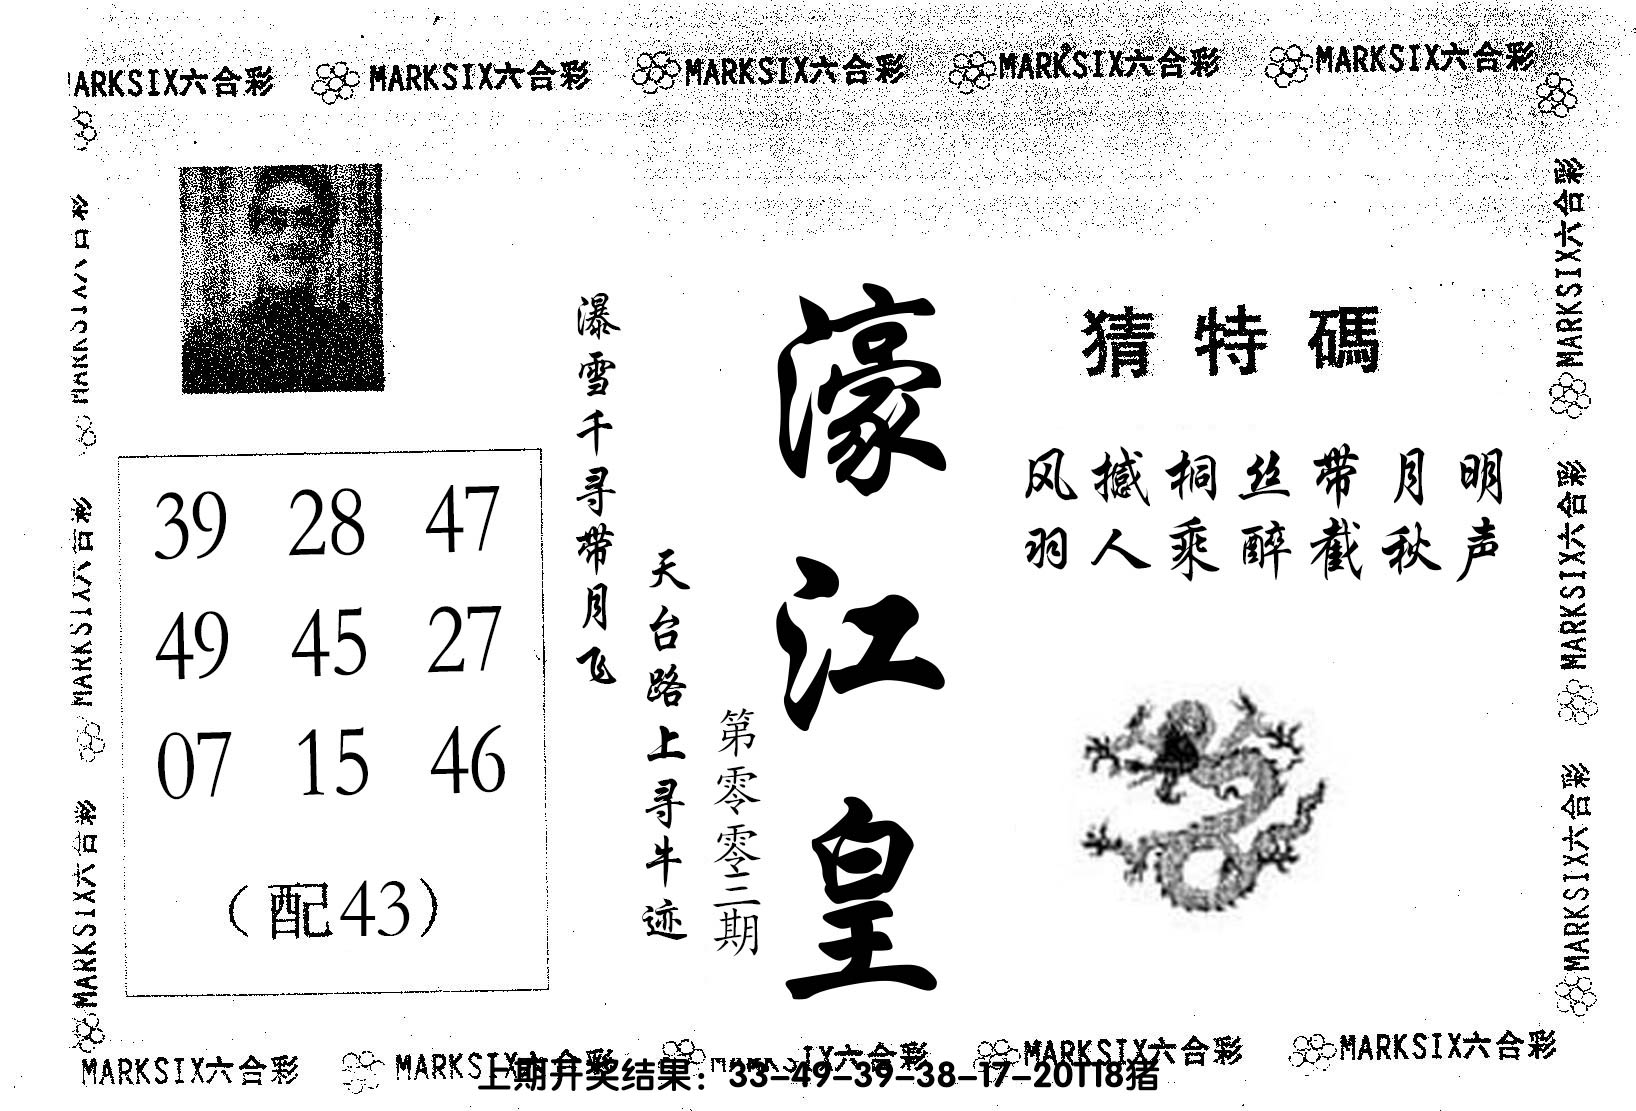 MARKSIX六合彩 MARKSIX六合彩 MARKSIX六合彩 MARKSIX六合彩 MARKSIX六合彩
猜特碼
风撼桐丝带月明
羽人乘醉截秋声
濠江皇
第零零三期
天台路上寻牛迹
瀑雪千寻带月飞
39 28 47
49 45 27
07 15 46
(配43)
MARKSIX六合彩
MARKSIX六合彩
MARKSIX六合彩
MARKSIX六合彩
MARKSIX六合彩
MARKSIX六合彩
MARKSIX六合彩 MARKSIX六合彩 MARKSIX六合彩 MARKSIX六合彩 MARKSIX六合彩
上期开奖结果：33-49-39-38-17-20T18猪